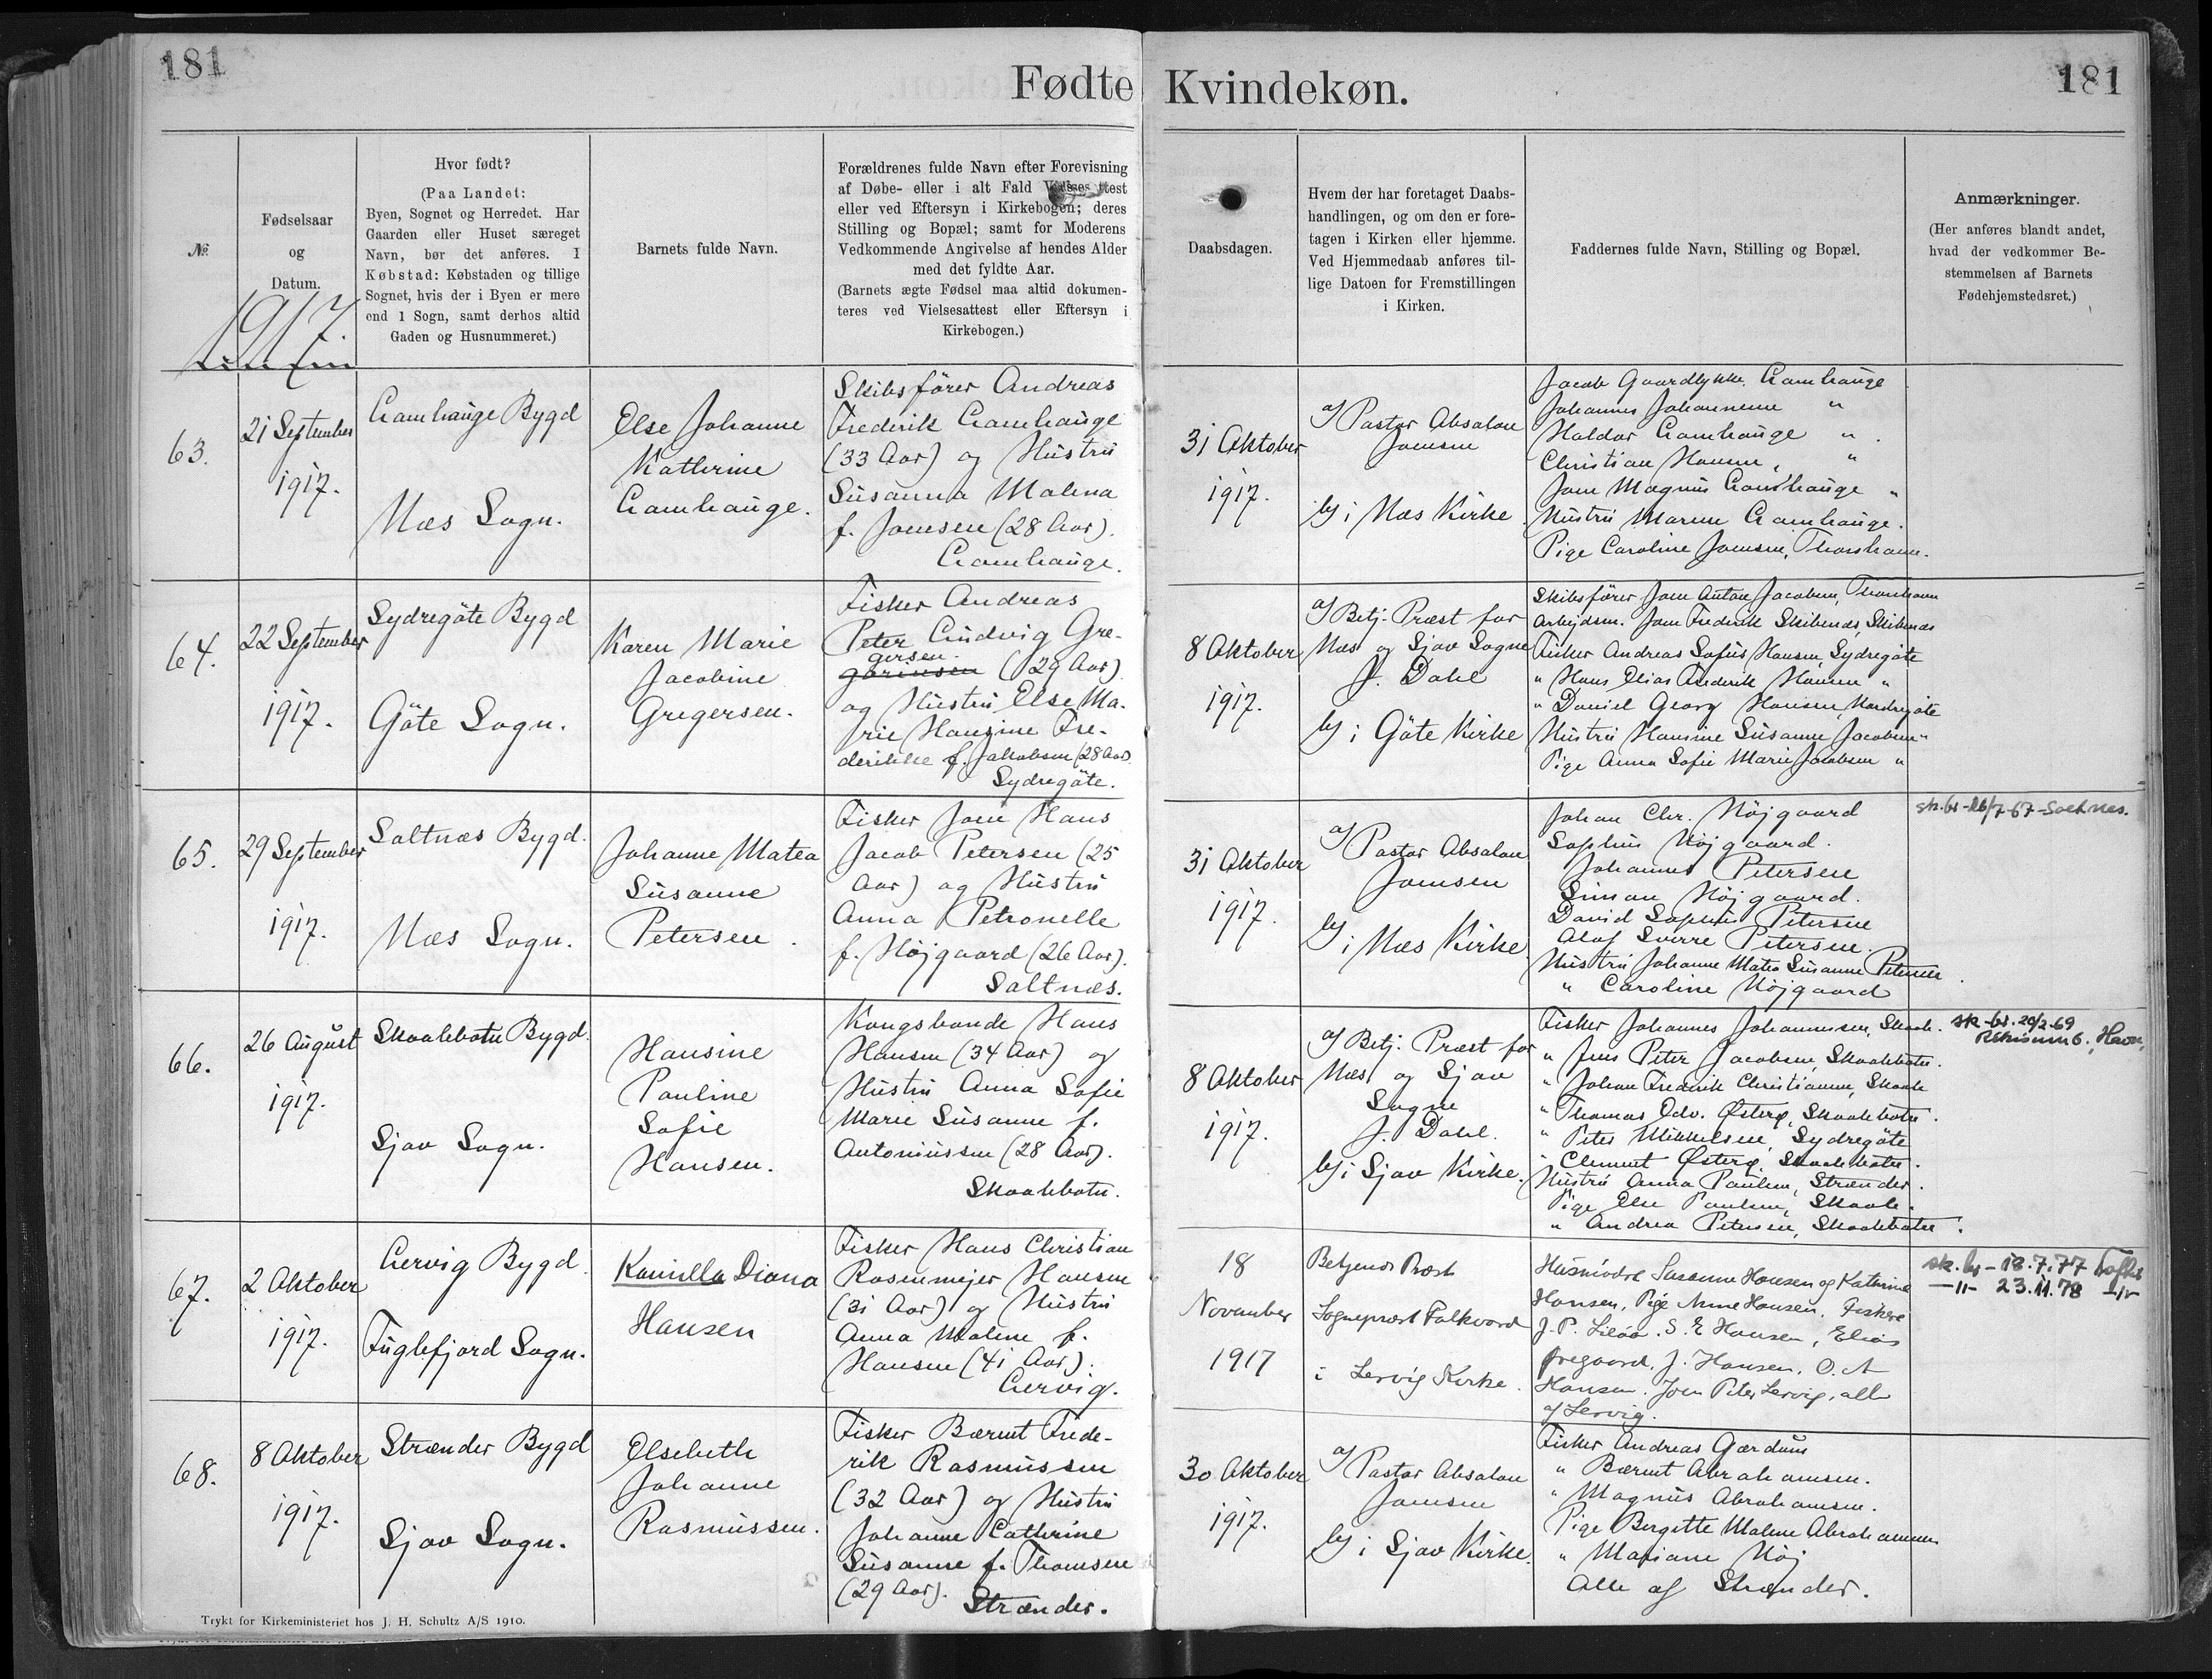 181
Fødte
Kvindekøn.
181
№
Fødselsaar
og
Datum.
1917.
Hvor født?
(Paa Landet:
Byen, Sognet og Herredet. Har
Gaarden eller Huset særeget
Navn, bør det anføres. I
Købstad: Købstaden og tillige
Sognet, hvis der i Byen er mere
end 1 Sogn, samt derhos altid
Gaden og Husnummeret.)
Barnets fulde Navn.
Forældrenes fulde Navn efter Forevisning
af Døbe- eller i alt Fald
eller ved Eftersyn i Kirkebogen; deres
Stilling og Bopæl; samt for Moderens
Vedkommende Angivelse af hendes Alder
med det fyldte Aar.
(Barnets ægte Fødsel maa altid dokumen-
teres ved Vielsesattest eller Eftersyn i
Kirkebogen.)
Daabsdagen.
Hvem der har foretaget Daabs-
handlingen, og om den er fore-
tagen i Kirken eller hjemme.
Ved Hjemmedaab anføres til-
lige Datoen for Fremstillingen
i Kirken.
Faddernes fulde Navn, Stilling og Bopæl.
Anmærkninger.
(Her anføres blandt andet,
hvad der vedkommer Be-
stemmelsen af Barnets
Fødehjemstedsret.)
63.
21 September
1917.
Lamhauge Bygd
Næs Sogn.
Else Johanne
Kathrine
Lamhauge.
Skibsfører Andreas
Frederik Lamhauge
(33 Aar) og Hustru
Susanna Malena
f. Joensen (28 Aar).
Lamhauge.
31 Oktober
1917.
a) Pastor Absalon
Joensen
b) i Næs Kirke.
Jacob Gaardlykke. Lamhauge
Johannes Johannesen "
Haldor Lamhauge "
Christian Hansen, "
Joen Magnus Lamhauge "
Hustru Maren Lamhauge.
Pige Caroline Joensen, Thorshavn.
64.
22 September
1917.
Sydregöte Bygd
Göte Sogn.
Karen Marie
Jacobine
Gregersen.
Fisker Andreas
Peter Ludvig Gre-
gersen.
(29 Aar)
og Hustru Else Ma-
rie Hansine Fre-
derikke f. Jakobsen (28 Aar).
Sydregöte.
8 Oktober
1917.
a) Betj. Præst for
Næs og Sjov Sogne
J. Dahl
b) i Göte Kirke
Skibsfører Joen Anton Jacobsen, Thorshavn
Arbejdsm. Joen Frederik Skibenæs, Skibenæs
Fisker Andreas Sofus Hansen, Sydregöte
" Hans Elias Frederik Hansen "
" Daniel Georg Hansen, Nordregöte
Hustru Hansine Susanne Jacobsen "
Pige Anna Sofie Marie Jacobsen "
65.
29 September
1917.
Saltnæs Bygd.
Næs Sogn.
Johanne Matea
Susanne
Petersen.
Fisker Joen Hans
Jacob Petersen (25
Aar) og Hustru
Anna Petronelle
f. Højgaard (26 Aar).
Saltnæs.
31 Oktober
1917.
a) Pastor Absalon
Joensen
b) i Næs Kirke.
Johan Chr. Højgaard
Sophus Højgaard.
Johannes Petersen
Simon Højgaard.
David Sophus Petersen
Olaf Sverre Petersen.
Hustru Johanne Matea Susanne Petersen.
" Caroline Højgaard
sk.br-26/7-67-Saltnes.
66.
26 August
1917.
Skaalebotn Bygd.
Sjov Sogn.
Hansine
Pauline
Sofie
Hansen.
Kongsbonde Hans
Hansen (34 Aar) og
Hustru Anna Sofie
Marie Susanne f.
Antoniussen (28 Aar).
Skaalebotn.
8 Oktober
1917.
a) Betj. Præst for
Næs og Sjov
Sogne
J. Dahl.
b) i Sjov Kirke.
Fisker Johannes Johannesen, Skaale.
" Jens Peter Jacobsen, Skaalebotn.
" Johan Frederik Christiansen, Skaale
" Thomas Edv. Østerø, Skaalebotn.
" Peter Mikkelsen, Sydregöte
" Clement Østerø, Skaalebotn.
Hustru Anna Paulsen, Strænder.
Pige Else Paulsen, Skaale.
" Andrea Petersen, Skaalebotn.
sk-br. 20/2-69
Havn
67.
2 Oktober
1917.
Lervig Bygd.
Fuglefjord Sogn.
Kamilla Diana
Hansen
Fisker Hans Christian
Rosenmejer Hansen
(31 Aar) og Hustru
Anna Malene f.
Hansen (41 Aar).
Lervig.
18
November
1917
Betjenende Præst
Sognepræst Falkvard
i Lervig Kirke.
Husmødre Susanne Hansen og Kathrine
Hansen, Pige Anne Hansen, Fiskere
J. P. S. E Hansen, Elias
J. Hansen, O. A
Hansen. Joen Peter Lervig, alle
af Lervig.
sk. br - 18.7.77 Tofter
—"— 23.11.78 —"—
68.
8 Oktober
1917.
Strænder Bygd
Sjov Sogn.
Elsebeth
Johanne
Rasmussen.
Fisker Bærent Frede-
rik Rasmussen
(32 Aar) og Hustru
Johanne Cathrine
Susanne f. Thomsen
(29 Aar).
Strænder.
30 Oktober
1917.
a) Pastor Absalon
Joensen
b) i Sjov Kirke.
Fisker Andreas Gærdum
" Bærent Abrahamsen.
" Magnus Abrahamsen.
Pige Birgitte Malene Abrahamsen
" Mariane Høj
Alle af Strænder.
Trykt for Kirkeministeriet hos J. H. Schultz A/S 1910.